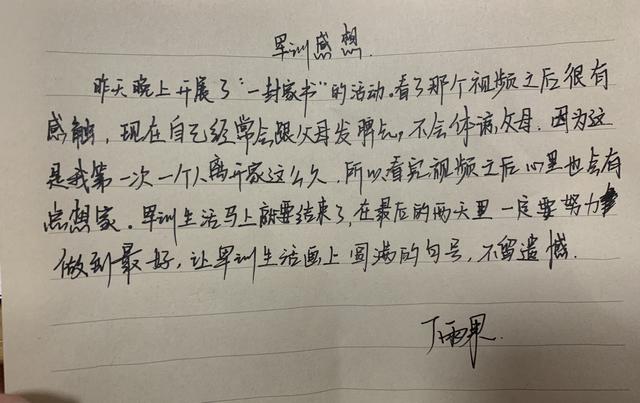 军训感想
昨天晚上开展了“一封家书”的活动。看了那个视频之后很有
感触，现在自己经常会跟父母发脾气，不会体谅父母。因为这
是我第一次一个人离开家这么久，所以看完视频之后心里也会有
点想家。军训生活马上就要结束了，在最后的两天里一定要努力
做到最好，让军训生活画上圆满的句号，不留遗憾.
丁雨果